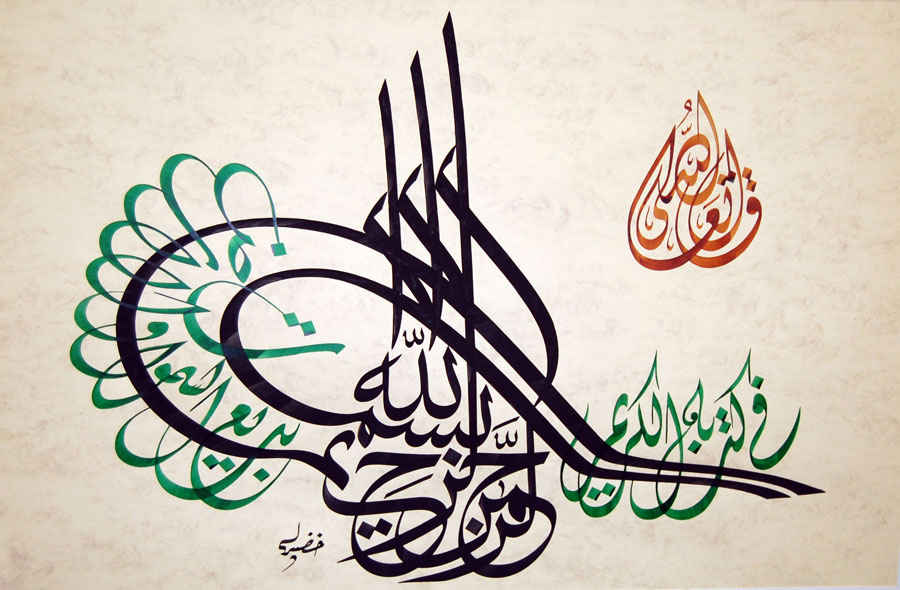 قال الله تعالى
في كتابه الكريم
بسم الله الرحمن الرحيم
بديع السموات
خضير